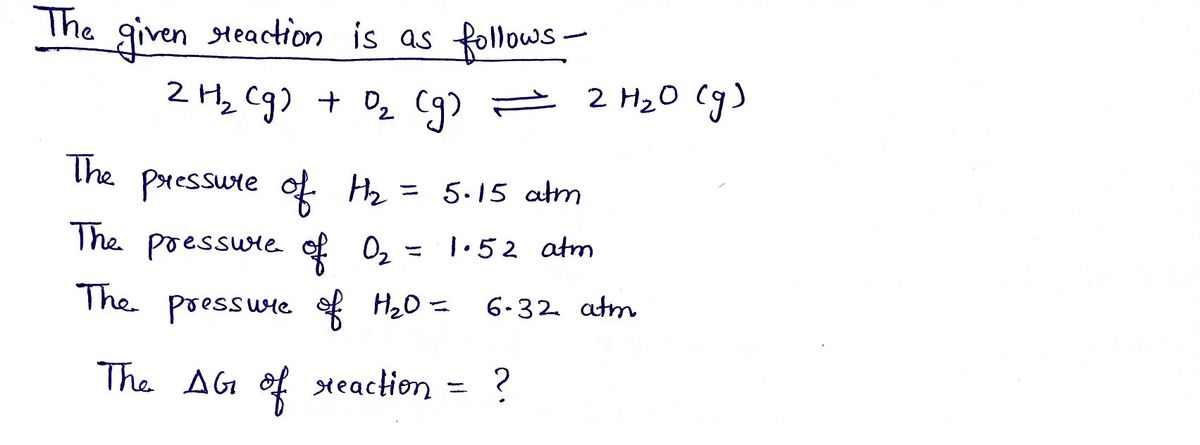 The given reaction is as follows-
2 H₂ (g) + O₂ (g) ⇌ 2 H₂O (g)
The pressure of H₂ = 5.15 atm
The pressure of O₂ = 1.52 atm
The pressure of H₂O = 6.32 atm
The ΔG of reaction = ?